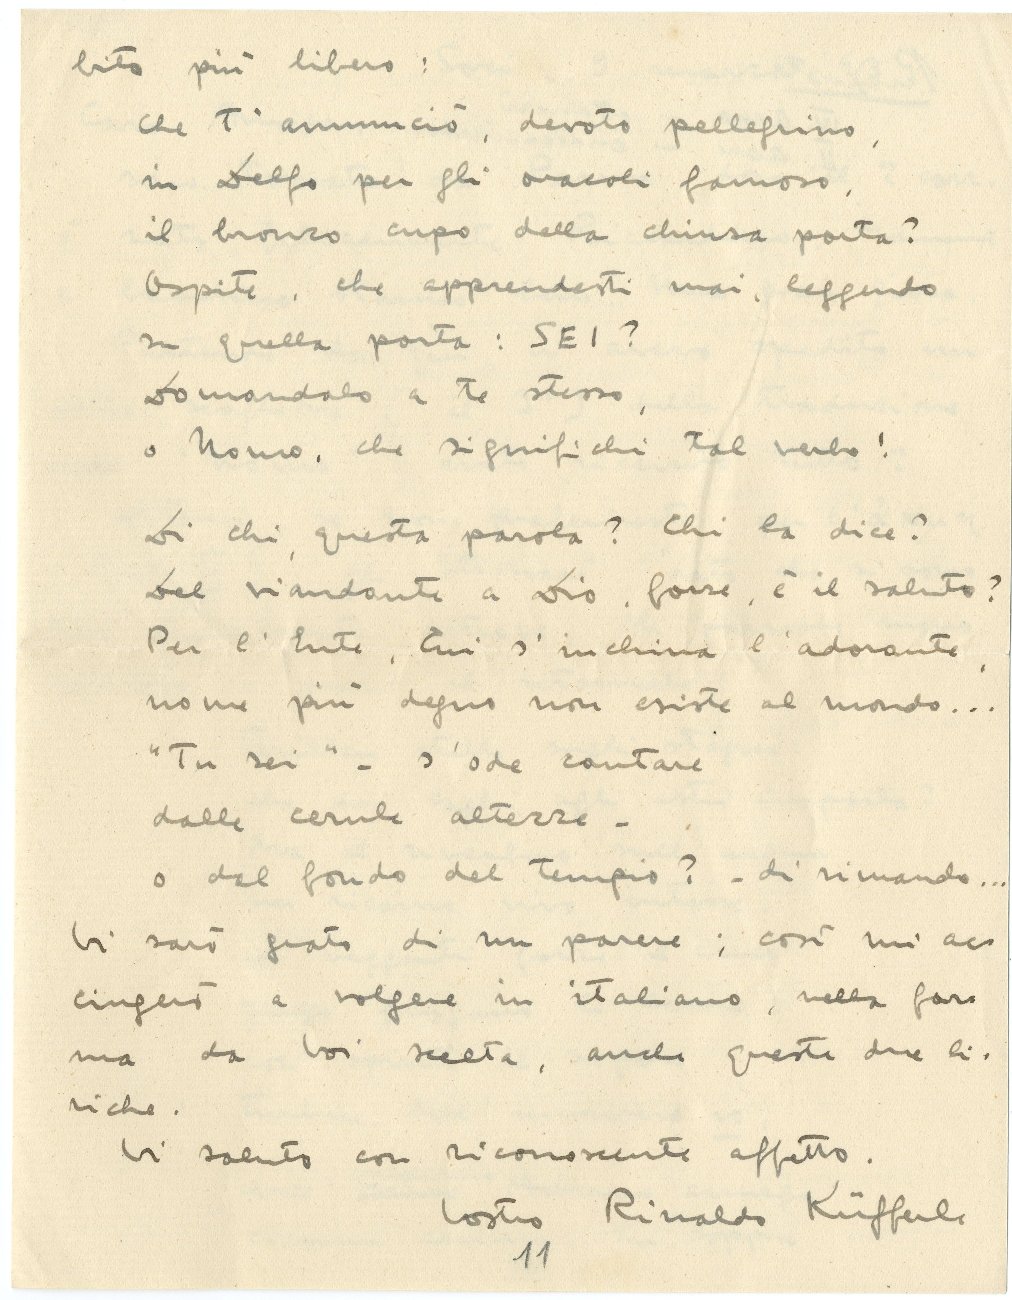 bito più libero:
che t'annunciò, devoto pellegrino,
in Delfo per gli oracoli famoso,
il bronzo cupo della chiusa porta?
Ospite, che apprendesti mai, leggendo
su quella porta: SEI?
Domandalo a te stesso,
o Uomo, che significhi tal verbo!
Di chi, questa parola? Chi la dice?
Del viandante a Dio, forse, è il saluto?
Per l'Ente, Cui s'inchina l'adorante,
nome più degno non esiste al mondo...
"Tu sei" - s'ode cantare
dalle cerule altezze -
o dal fondo del tempio? - di rimando...
Vi sarò grato di un parere; così mi ac-
cingerò a volgere in italiano, nella for-
ma da Voi scelta, anche queste due li-
riche.
Vi saluto con riconoscente affetto.
Vostro Rinaldo Küfferle
11